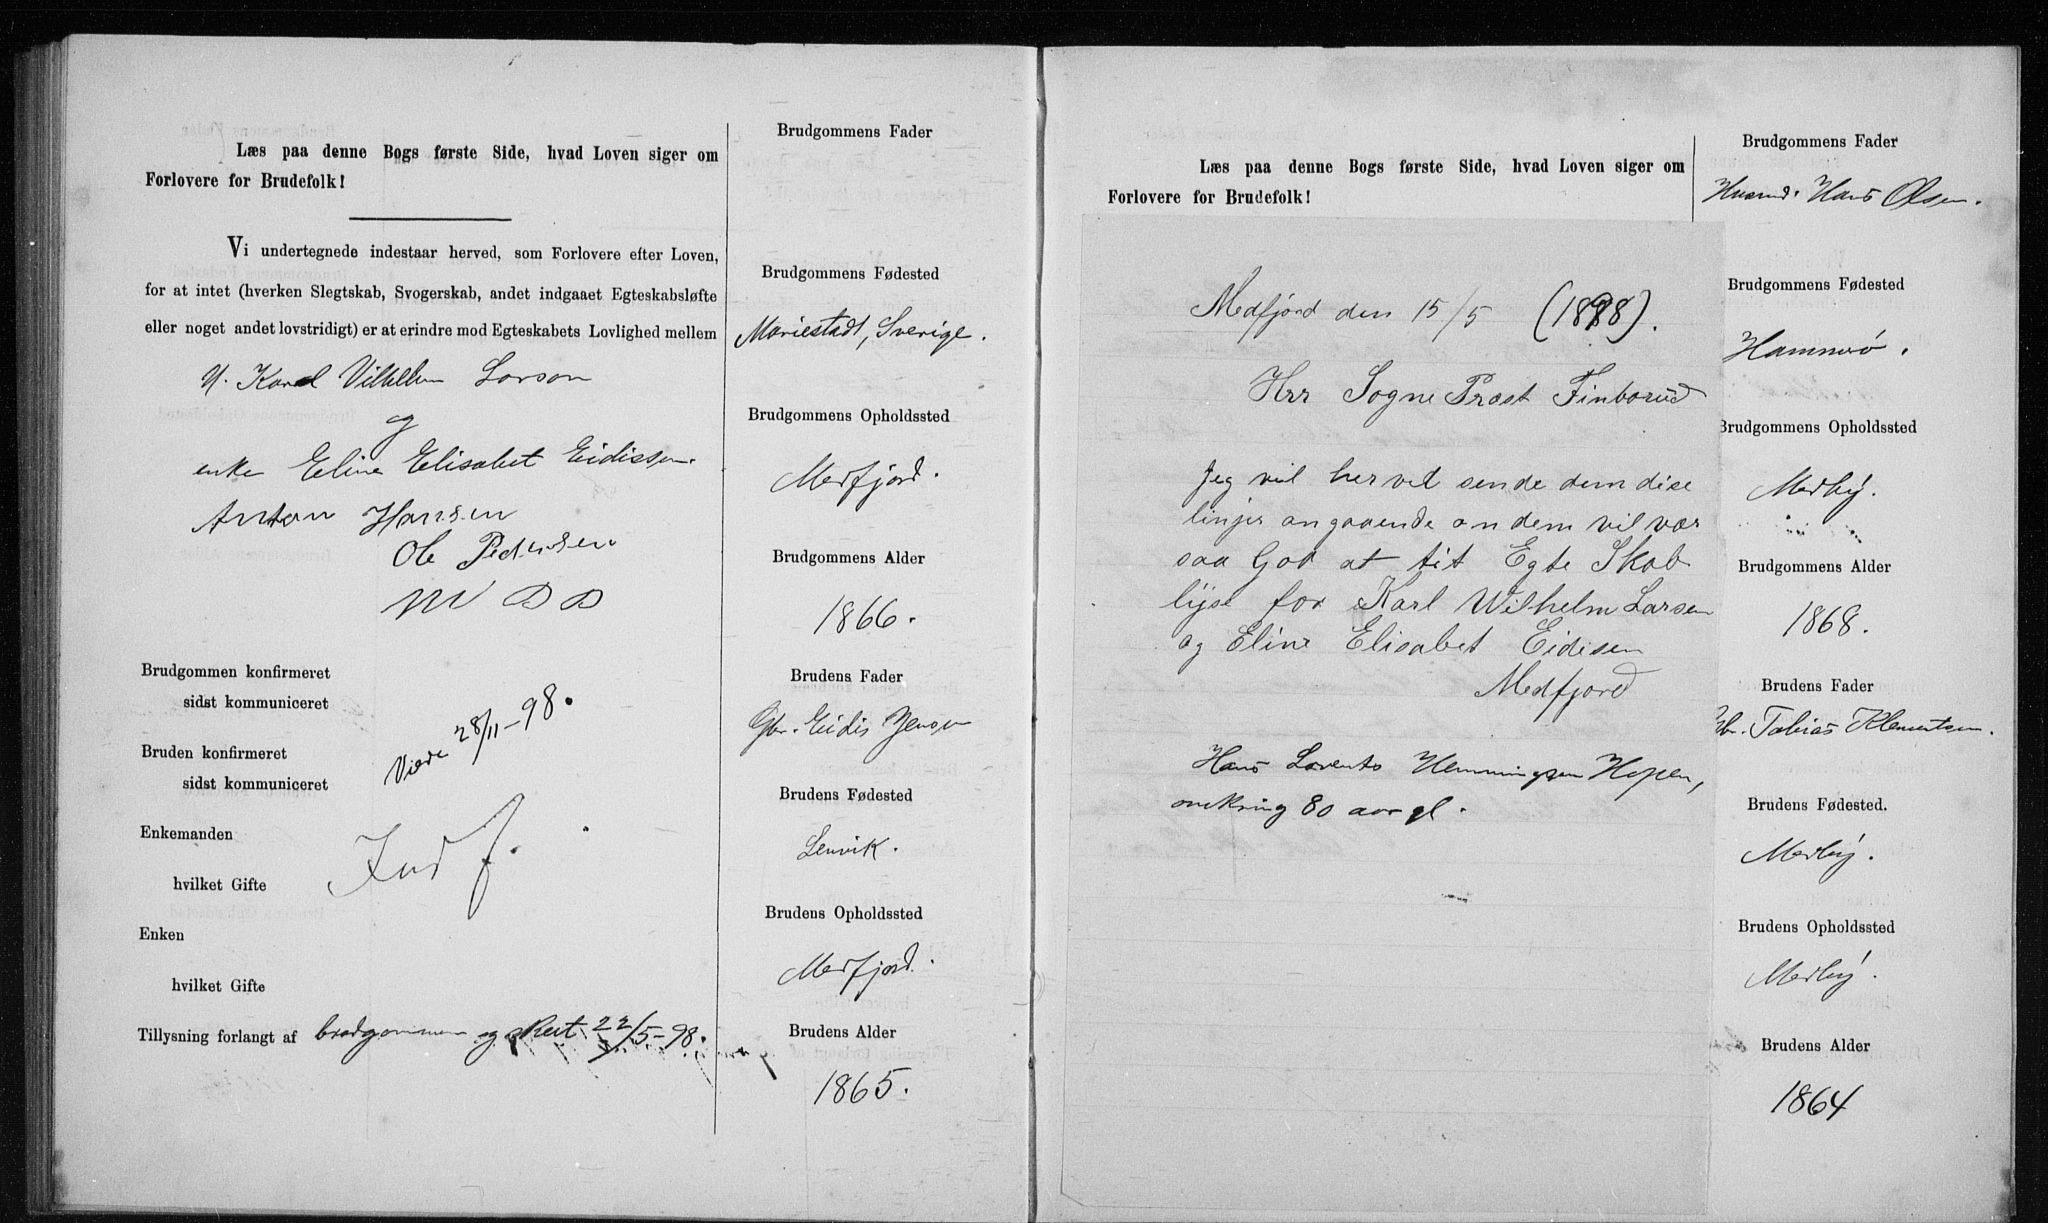 Læs paa denne Bogs første Side, hvad Loven siger om
Forlovere for Brudefolk!
Vi undertegnede indestaar herved, som Forlovere efter Loven,
for at intet (hverken Slegtskab, Svogerskab, andet indgaaet Egteskabsløfte
eller noget andet lovstridigt) er at erindre mod Egteskabets Lovlighed mellem
Karl Vilhelm Larson
og
enke Eline Elisabet Eidissen.
Anton Hansen
Ole Pedersen
Brudgommen konfirmeret
sidst kommuniceret
Viede 28/11-98.
Bruden konfirmeret
sidst kommuniceret
Enkemanden
Indf.
hvilket Gifte
Enken
hvilket Gifte
Tillysning forlangt af brudgommen og skeet 22/5-98.
Brudgommens Fader
Brudgommens Fødested
Mariestadt, Sverige.
Brudgommens Opholdssted
Medfjord.
Brudgommens Alder
1866.
Brudens Fader
Gbr. Eidis Jensen
Brudens Fødested
Lenvik.
Brudens Opholdssted
Medfjord.
Brudens Alder
1865.
Læs paa denne Bogs første Side, hvad Loven siger om
Forlovere for Brudefolk!
Medfjord den 15/5 (1898).
Hrr Sogne Præst Finborud
Jeg vil herved sende dem dise
linjer angaaende om dem vil vær
saa God at tit Egte Skab
lyse for Karl Wilhelm Larsen
og Eline Elisabet Eidisen
Medfjord
Hans Lorents Hemmingsen Hopen,
omkring 80 aar gl.
Brudgommens Fader
Husmd. Hans Olsen.
Brudgommens Fødested
Hammerø.
Brudgommens Opholdssted
Medby.
Brudgommens Alder
1868.
Brudens Fader
Tobias Klementsen.
Brudens Fødested.
Medby.
Brudens Opholdssted
Medby.
Brudens Alder
1864